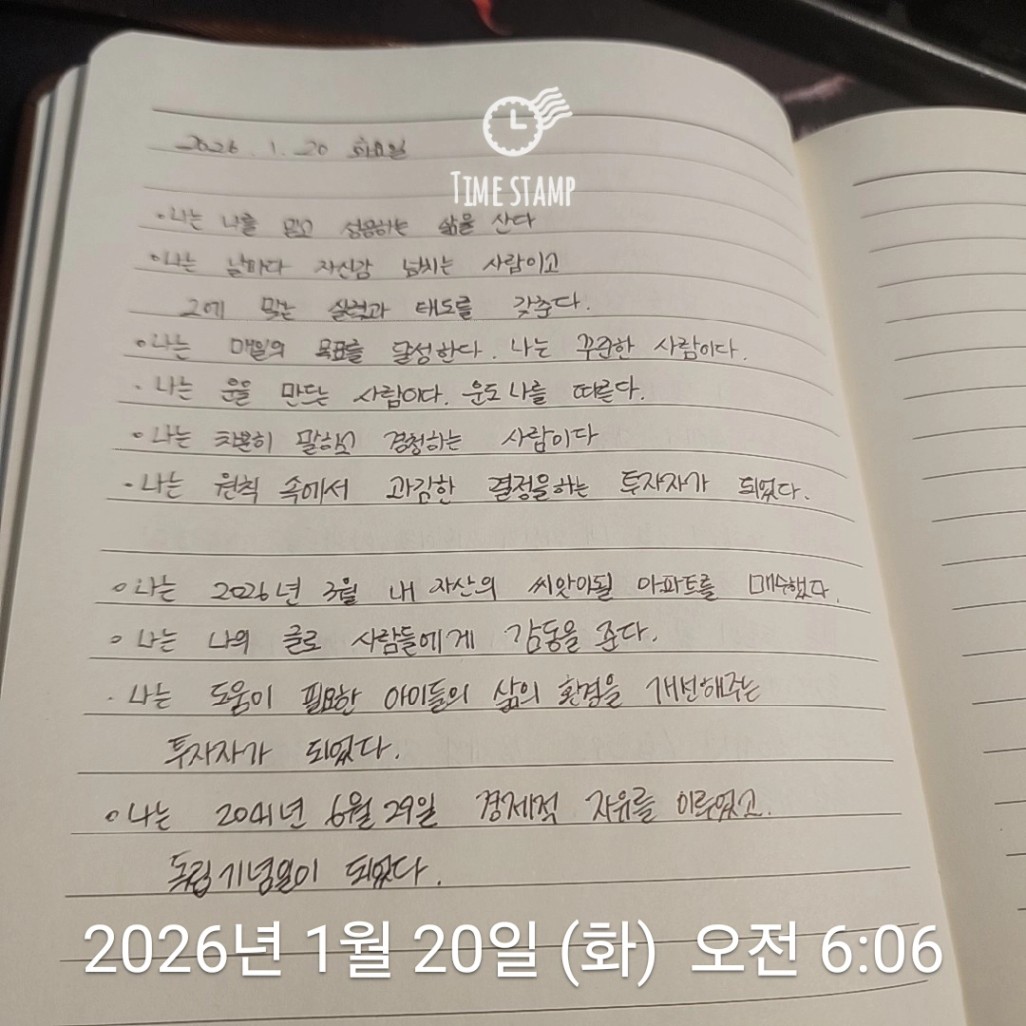 2026. 1. 20 화요일
TIME STAMP
• 나는 나를 믿고 성공하는 삶을 산다
• 나는 날마다 자신감 넘치는 사람이고
그에 맞는 실력과 태도를 갖춘다.
• 나는 매일의 목표를 달성한다. 나는 꾸준한 사람이다.
• 나는 운을 만드는 사람이다. 운도 나를 따른다.
• 나는 차분히 말하고 경청하는 사람이다
• 나는 원칙 속에서 과감한 결정을하는 투자자가 되었다.
• 나는 2026년 3월 내 자산의 씨앗이될 아파트를 매수했다.
• 나는 나의 글로 사람들에게 감동을 준다.
• 나는 도움이 필요한 아이들의 삶의 환경을 개선해주는
투자자가 되었다.
• 나는 2041년 6월 29일 경제적 자유를 이루었고.
독립기념일이 되었다.
2026년 1월 20일 (화) 오전 6:06